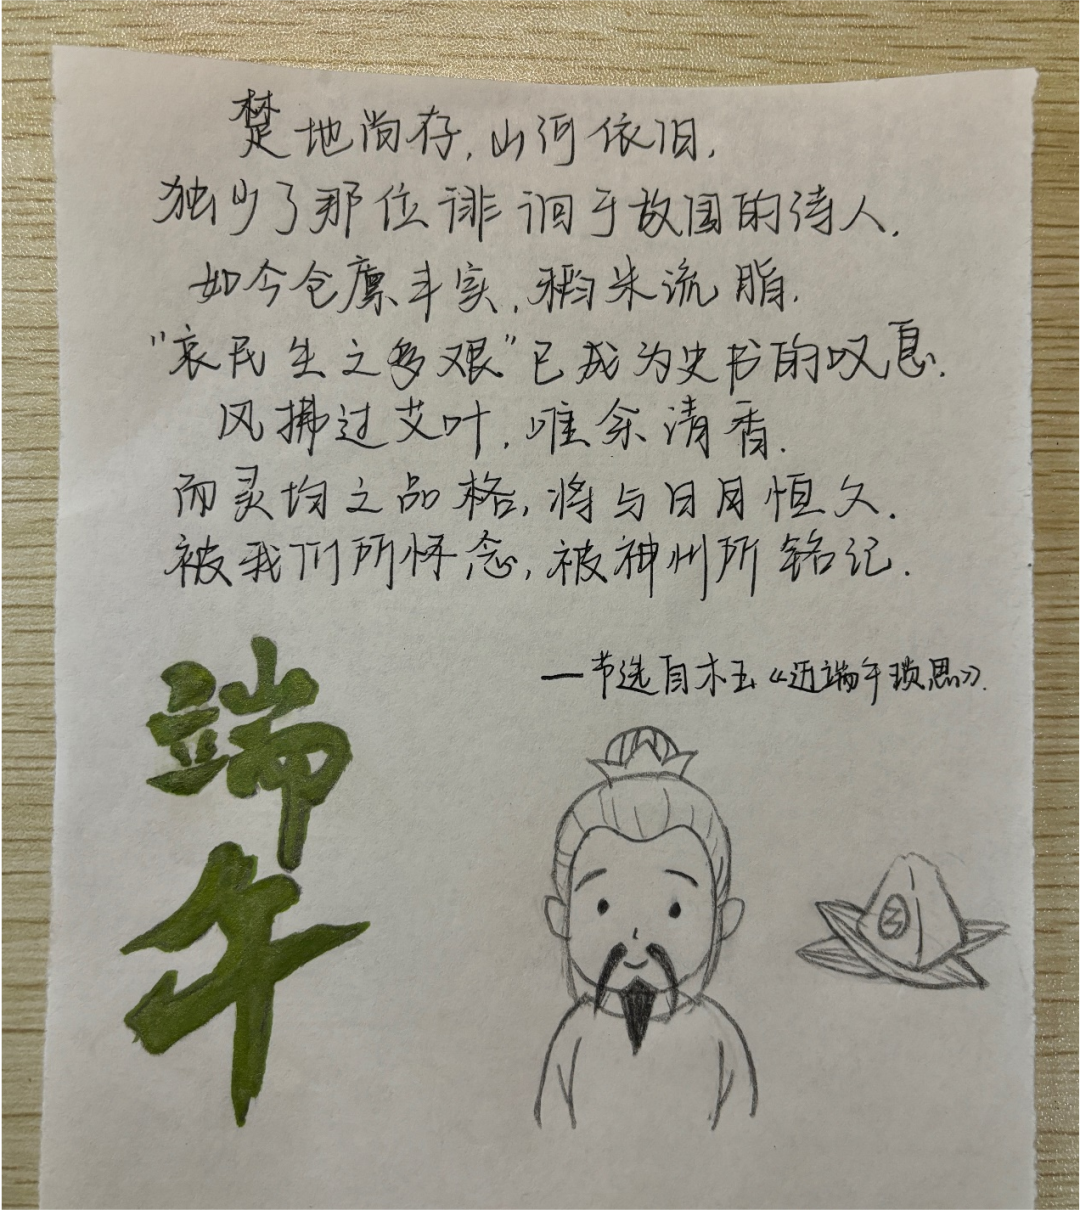 楚地尚存,山河依旧,
独少了那位诽诩于故国的诗人.
如今仓廪丰实,稻米流脂.
"哀民生之多艰"已成为史书的叹息.
风拂过艾叶,唯余清香.
而灵均之品格,将与日月恒久.
被我们所怀念,被神州所铭记.
—节选自木玉《迈端午琐思》.
端午